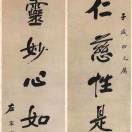 子威四兄屬
仁慈性是
靈妙心如
左宗